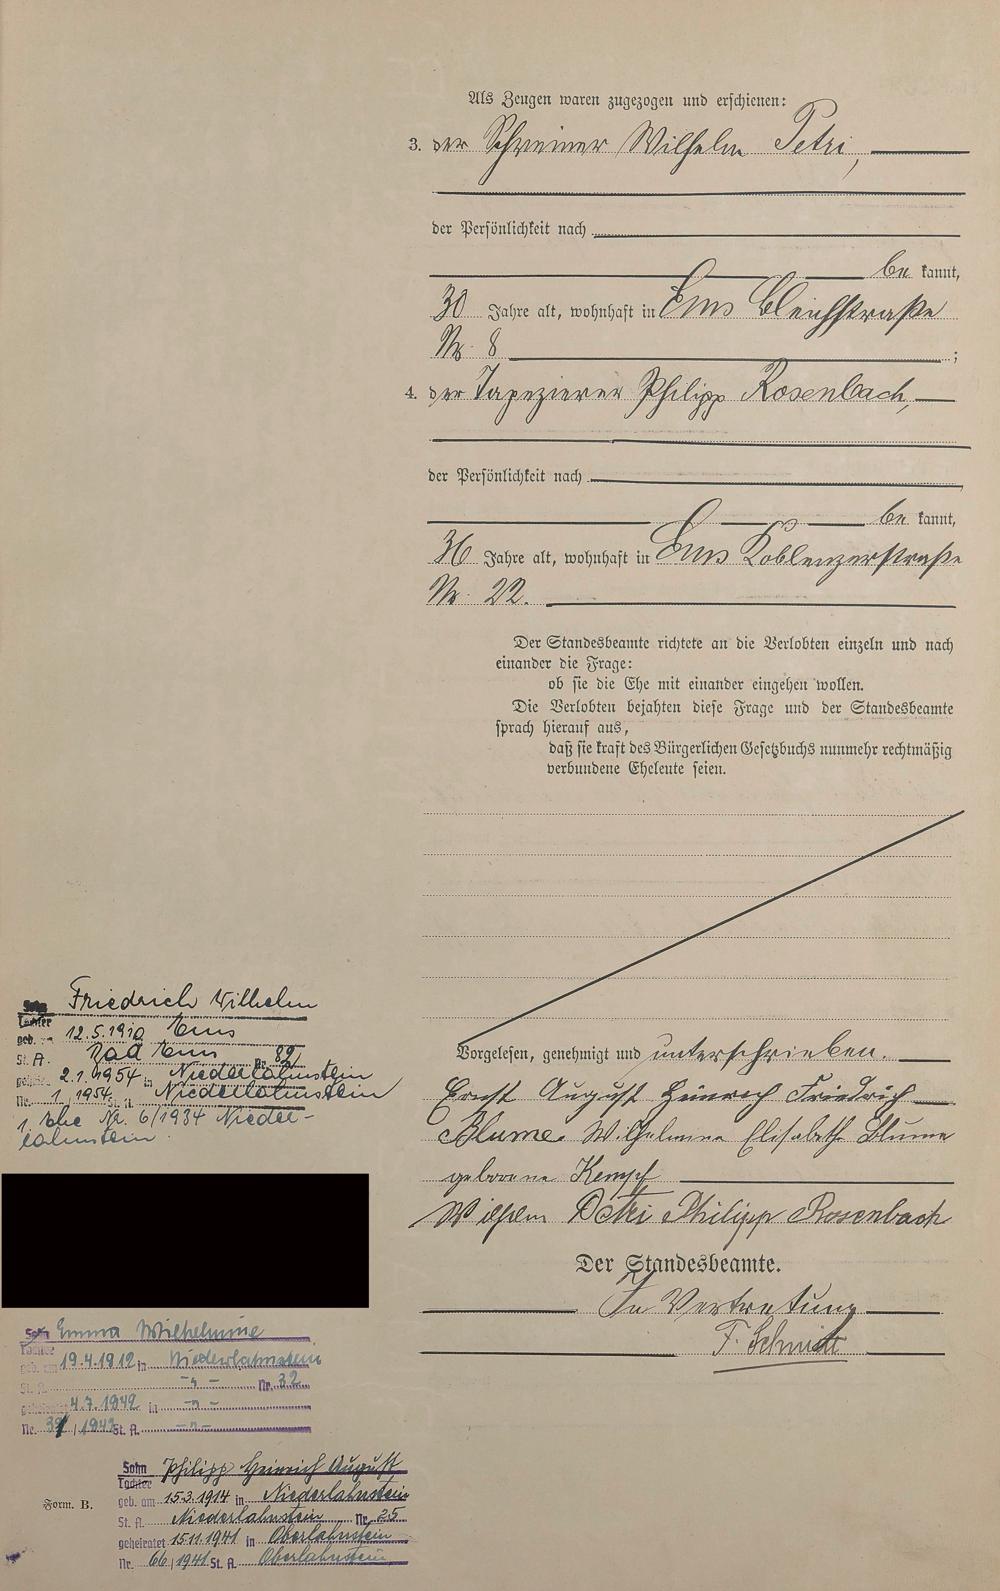 Als Zeugen waren zugezogen und erschienen:
3. der Schreiner Wilhelm Petri,
der Persönlichkeit nach
be kannt,
30 Jahre alt, wohnhaft in Ems Bleichstraße
Nr. 8 ;
4. der Tapezierer Philipp Rosenbach,
der Persönlichkeit nach
be kannt,
36 Jahre alt, wohnhaft in Ems Koblenzerstraße
Nr. 22.
Der Standesbeamte richtete an die Verlobten einzeln und nach
einander die Frage:
ob sie die Ehe mit einander eingehen wollen.
Die Verlobten bejahten diese Frage und der Standesbeamte
sprach hierauf aus,
daß sie kraft des Bürgerlichen Gesetzbuchs nunmehr rechtmäßig
verbundene Eheleute seien.
Vorgelesen, genehmigt und unterschrieben.
Ernst August Heinrich Friedrich
Blume. Wilhelmine Elisabeth Blume
geborene Kempf
Wilhelm Petri Philipp Rosenbach
Der Standesbeamte.
In Vertretung
F. Schmidt
Sohn Friedrich Wilhelm
Tochter
geb. 12.5.1910 Ems
St. A. Bad Ems Nr. 82
2.1.1954 in Niederlahnstein
Nr. 1/1954 St. A. Niederlahnstein
1. Ehe Nr. 6/1934 Nieder-
lahnstein.
Sohn Emma Wilhelmine
Tochter
geb. am 19.4.1912 in Niederlahnstein
St. A. -"- Nr. 32
geheiratet 4.7.1942 in -"-
Nr. /1942 St. A. -"-
Sohn Philipp Heinrich August
Tochter
geb. am 15.3.1914 in Niederlahnstein
St. A. Niederlahnstein Nr. 25
geheiratet 15.11.1941 in Oberlahnstein
Nr. 66/1941 St. A. Oberlahnstein
Form. B.